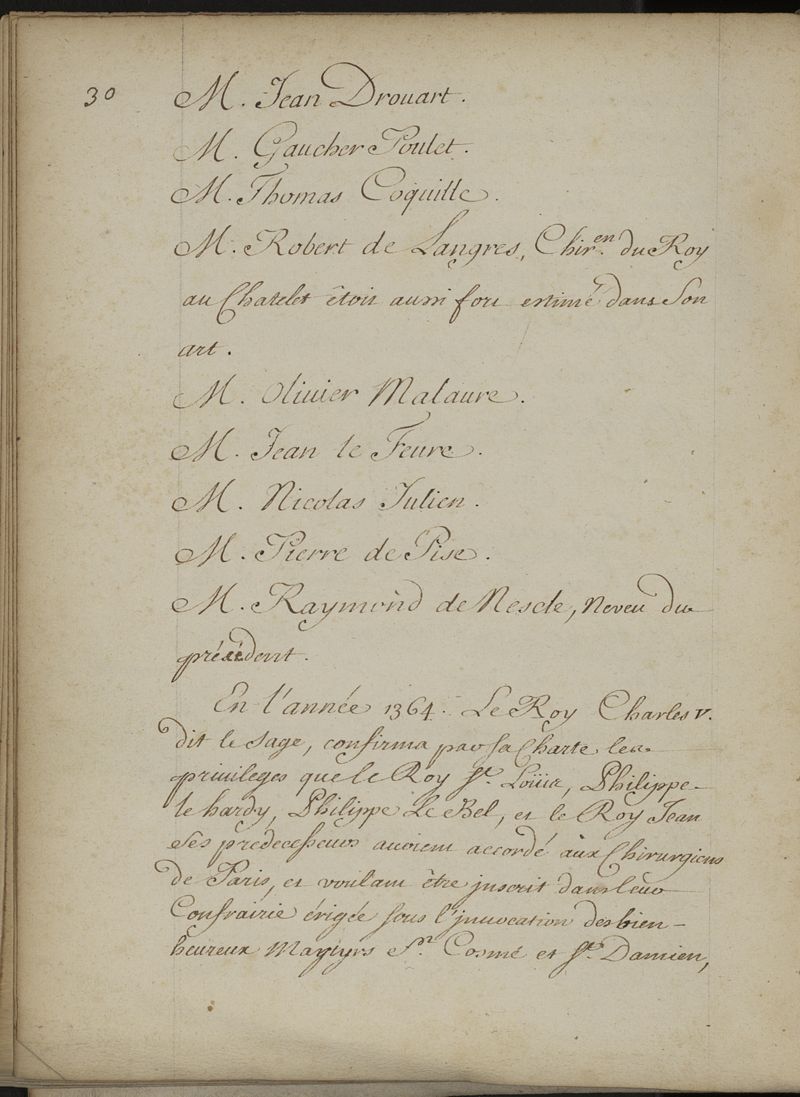 30
M. Jean Drouart.
M. Gaucher Poulet.
M. Thomas Coquille.
M. Robert de Langres, Chir.en du Roy
au Chatelet êtoit aussi fort estimé dans Son
art.
M. Olivier Malaure.
M. Jean le Feure.
M. Nicolas Julien.
M. Pierre de Pise.
M. Raymond de Nesele, Neveu du
présédent.
En l'année 1364. Le Roy Charles V.
dit le Sage, confirma par sa Charte les
privileges que le Roy St. Loüis, Philippe
le hardy, Philippe Le Bel, et le Roy Jean
Ses predecesseurs avoient accordé aux Chirurgiens
de Paris, et voulant être jnscrit dans leur
Confrairie érigée sous l'jnvocation des bien-
heureux Martyrs St. Cosme et St. Damien,